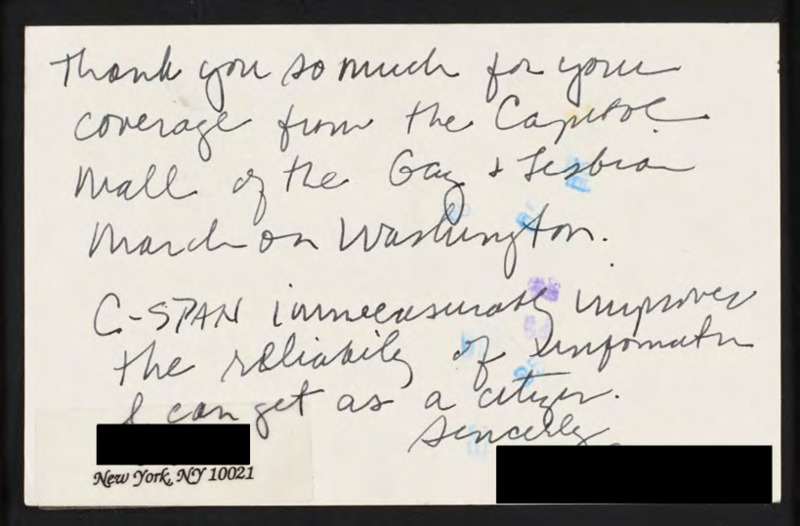 Thank you so much for your
coverage from the Capitol
Mall of the Gay & Lesbian
March on Washington.
C-SPAN immeasurably improves
the reliability of information
I can get as a citizen.
Sincerely
New York, NY 10021